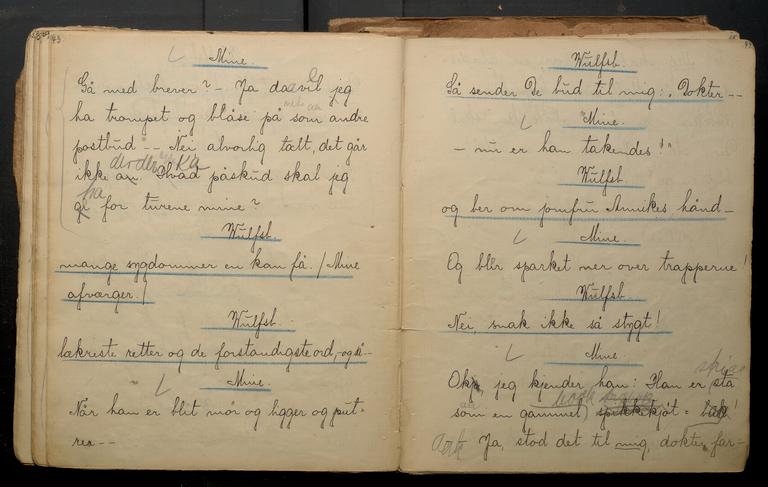 43
Mine.
Gå med brever? – Ja da vil jeg
ha trompet og blåse på som andre
postbud –– Nei alvorlig talt, det går
ikke an. Hvad påskud skal jeg
gi for turene mine?
Wulfsb.
mange sygdommer en kan få. / Mine
afværger. /
Wulfsb.
lækreste retter og de forstandigste ord, – og så –
Mine.
Når han er blit mør og ligger og put-
rer ––
Wulfsb.
Så sender De bud til mig: „Dokter ––
Mine.
– nu er han takendes!"
Wulfsb.
og ber om jomfru Annikes hånd –
Mine.
Og blir sparket ner over trapperne!
Wulfsb.
Nei, snak ikke så stygt!
Mine.
jeg kjender han: Han er stå
som en gammel spikkekjøt =
Ja, stod det til mig, dokter, far –